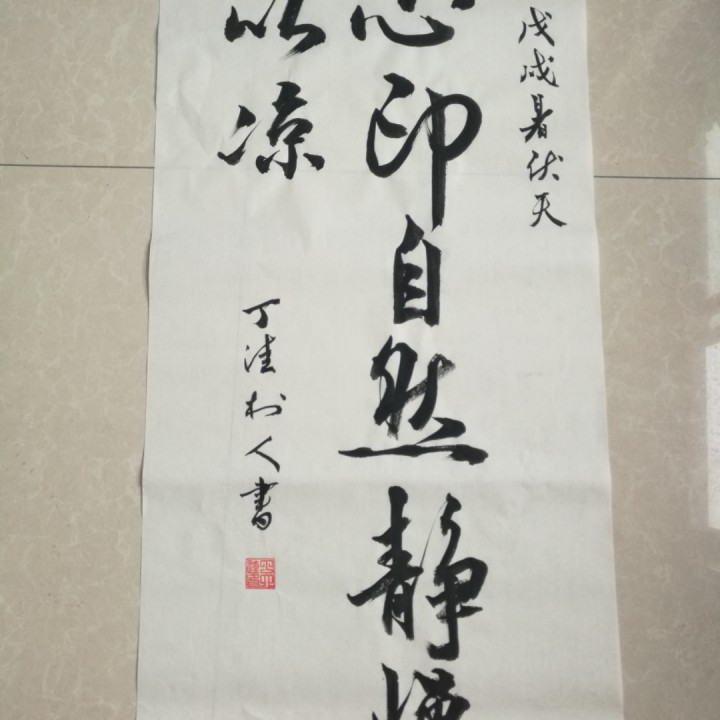 戊戌暑伏天
心印自然静
以凉
丁洼村人書